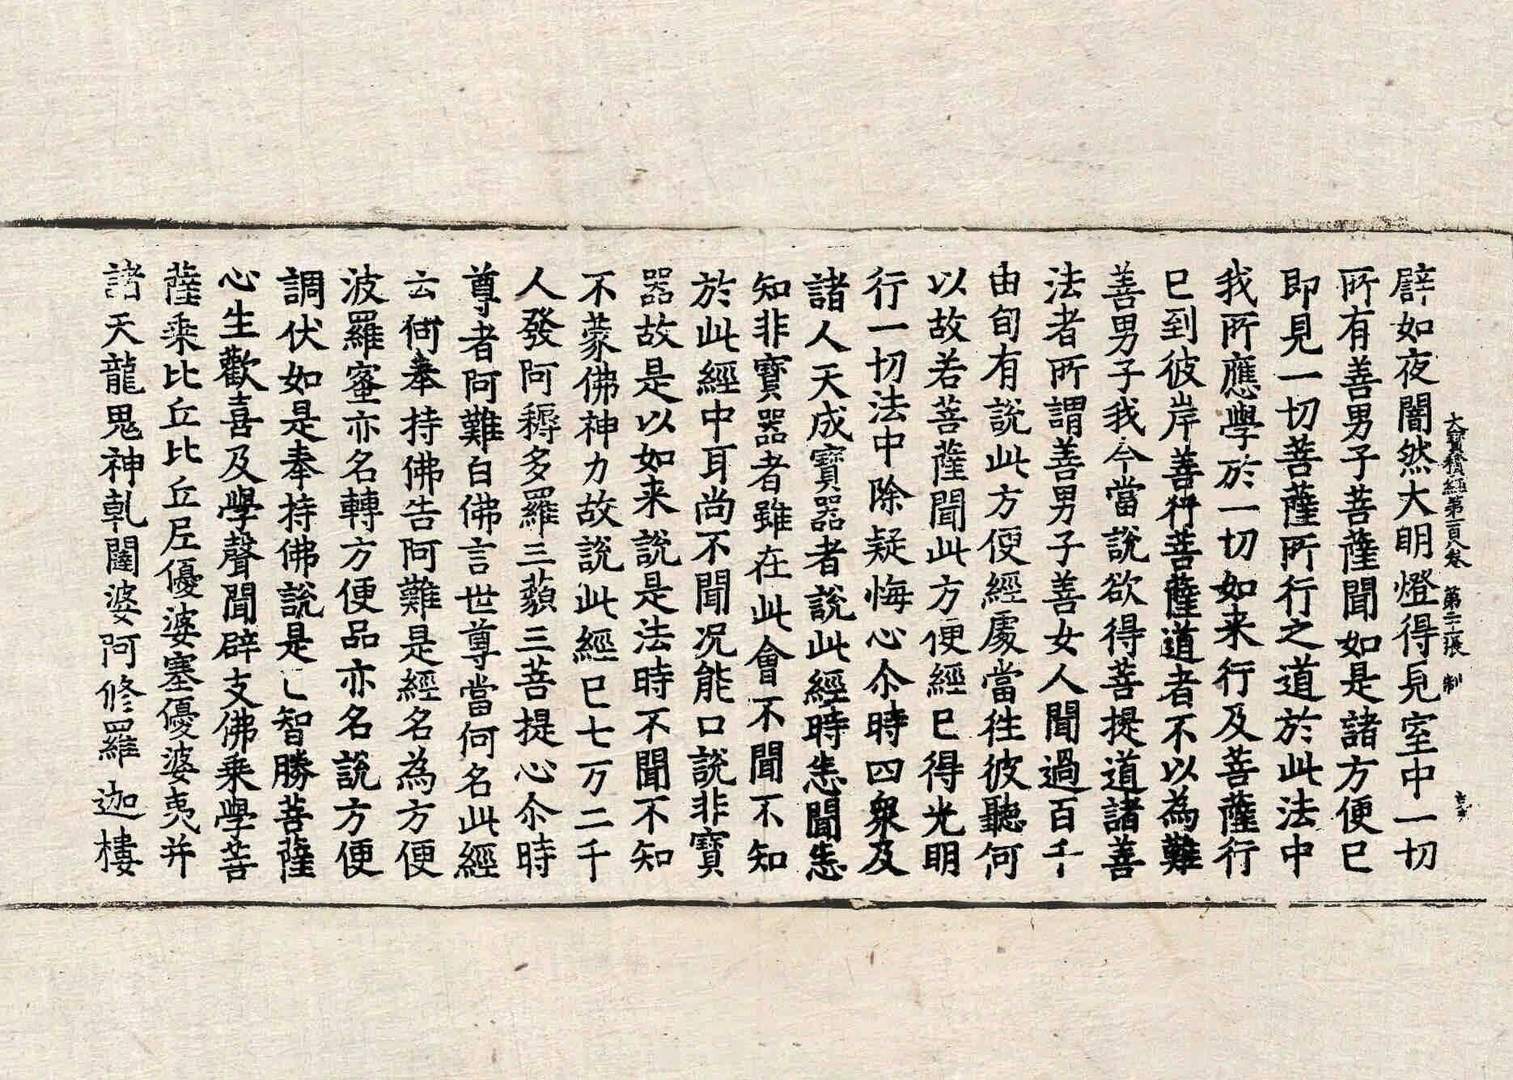 大寶積經第一百八卷 第三十二張 制
辟如夜闇然大明燈得見室中一切
所有善男子菩薩聞如是諸方便已
即見一切菩薩所行之道於此法中
我所應學於一切如来行及菩薩行
已到彼岸善行菩薩道者不以為難
善男子我今當說欲得菩提道諸善
法者所謂善男子善女人聞過百千
由旬有說此方便經處當往彼聽何
以故若菩薩聞此方便經已得光明
行一切法中除疑悔心尒時四衆及
諸人天成寶器者說此經時悉聞悉
知非寶器者雖在此會不聞不知
於此經中耳尚不聞况能口說非寶
器故是以如来說是法時不聞不知
不蒙佛神力故說此經已七万二千
人發阿耨多羅三藐三菩提心尒時
尊者阿難白佛言世尊當何名此經
云何奉持佛告阿難是經名為方便
波羅蜜亦名轉方便品亦名說方便
調伏如是奉持佛說是已智勝菩薩
心生歡喜及學聲聞辟支佛乘學菩
薩乘比丘比丘尼優婆塞優婆夷并
諸天龍鬼神乹闥婆阿修羅迦樓